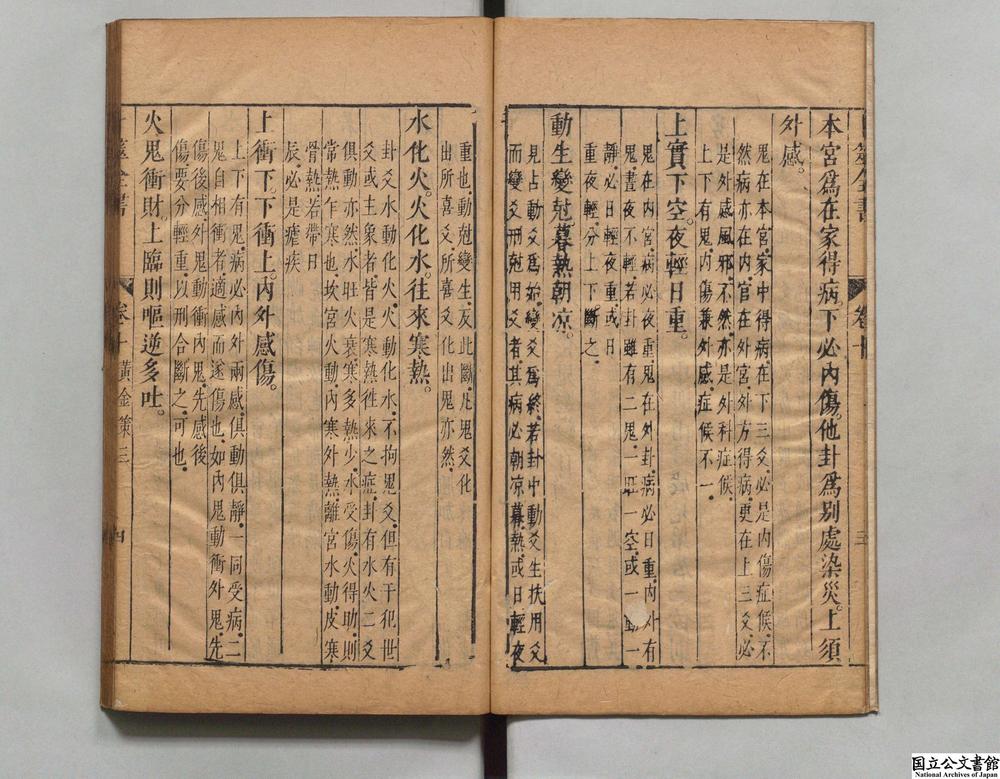 本宮爲在家得病下必内傷他卦爲别處染災上須
外感
鬼在本宮家中得病在下三爻必是内傷症候不
然病亦在内官在外宮外方得病更在上三爻必
是外感風邪不然亦是外科症候
上下有鬼内傷兼外感症候不一
上實下空夜輕日重
鬼在内宮病必夜重鬼在外卦病必日重内外有
鬼晝夜不輕若卦雖有二鬼一旺一空或一動一
靜必日輕夜重或日
重夜輕分上下斷之
動生變尅暮熱朝凉
見占動爻爲始變爻爲終若卦中動爻生扶用爻
而變爻刑尅用爻者其病必朝凉暮熱或日輕夜
重也動尅變生反此斷凡鬼爻化
出所喜爻所喜爻化出鬼亦然
水化火火化水往來寒熱
卦爻水動化火火動化水不拘鬼爻但有干犯世
爻或主象者皆是寒熱往來之症卦有水火二爻
俱動亦然水旺火衰寒多熱少水受傷火得助則
常熱乍寒也坎宮火動内寒外熱離宮水動皮寒
骨熱若帶日
辰必是瘧疾
上衝下下衝上内外感傷
上下有鬼病必内外兩感俱動俱靜一同受病二
鬼自相衝者適感而遂傷也如内鬼動衝外鬼先
傷後感外鬼動衝内鬼先感後
傷要分輕重以刑合斷之可也
火鬼衝財上臨則嘔逆多吐
卷十 黄金策三 四
国立公文書館
National Archives of Japan